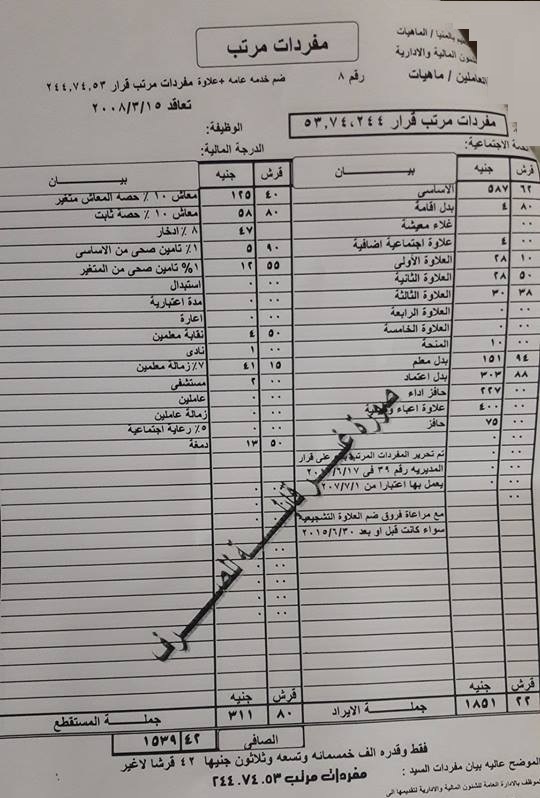 بالمنيا / الماهيات
المالية والادارية
التعاملين / ماهيات
مفردات مرتب
رقم ٨ ضم خدمه عامه +علاوة مفردات مرتب قرار ٢٤٤,٧٤,٥٣
تعاقد ٢٠٠٨/٣/١٥
مفردات مرتب قرار ٥٣,٧٤,٢٤٤
الوظيفة:
الاجتماعية:
الدرجة المالية:
قرش جنيه بيـــــان
٦٢ ٥٨٧ الاساسى
٨٠ ٤ بدل اقامة
٠٠ غلاء معيشة
٠٠ ٤ علاوة اجتماعية اضافية
١٠ ٢٨ العلاوة الأولى
٥٠ ٢٨ العلاوة الثانية
٣٨ ٣٠ العلاوة الثالثة
٠٠ ٠ العلاوة الرابعة
٠٠ ٠ العلاوة الخامسة
٠٠ ١٠ المنحة
٩٤ ١٥١ بدل معلم
٨٨ ٣٠٣ بدل اعتماد
٠٠ ٢٢٧ حافز اداء
٠٠ ٤٠٠ علاوة اعباء
٠٠ ٧٥ حافز
تم تحرير المفردات المرتب على قرار
المديريه رقم ٣٩ فى
يعمل بها اعتبارا من ٢٠٠٧/٧/١
مع مراعاة فروق ضم العلاوة التشجيعية
سواء كانت قبل او بعد ٢٠١٥/٦/٣٠
قرش جنيه
٢٢ ١٨٥١ جملـــة الايراد
قرش جنيه بيـــــان
٤٠ ١٢٥ معاش ١٠ ٪ حصه المعاش متغير
٨٠ ٥٨ معاش ١٠ ٪ حصة ثابت
٤٧ ٨ ٪ ادخار
٩٠ ٥ ١٪ تامين صحى من الاساسى
٥٥ ١٢ ١% تامين صحى من المتغير
٠٠ ٠ استبدال
٠٠ ٠ مدة اعتبارية
٠٠ ٠ اعارة
٥٠ ٤ نقابة معلمين
٠٠ ١ نادى
١٥ ٤١ ٧٪ زمالة معلمين
٠٠ ٢ مستشفى
٠٠ ٠ عاملين
٠٠ ٠ زمالة عاملين
٠٠ ٠ ٥٪ رعاية اجتماعية
٥٠ ١٣ دمغة
قرش جنيه
٨٠ ٣١١ جملـــة المستقطع
صورة غير قابلة للصرف
الصافى ٤٢ ١٥٣٩
فقط وقدره الف خمسمائه وتسعه وثلاثون جنيها ٤٢ قرشا لاغير
الموضح عاليه بيان مفردات السيد : مفردات مرتب ٢٤٤.٧٤.٥٣
الموظف بالادارة العامة للشئون المالية والادارية لتقديمها الى